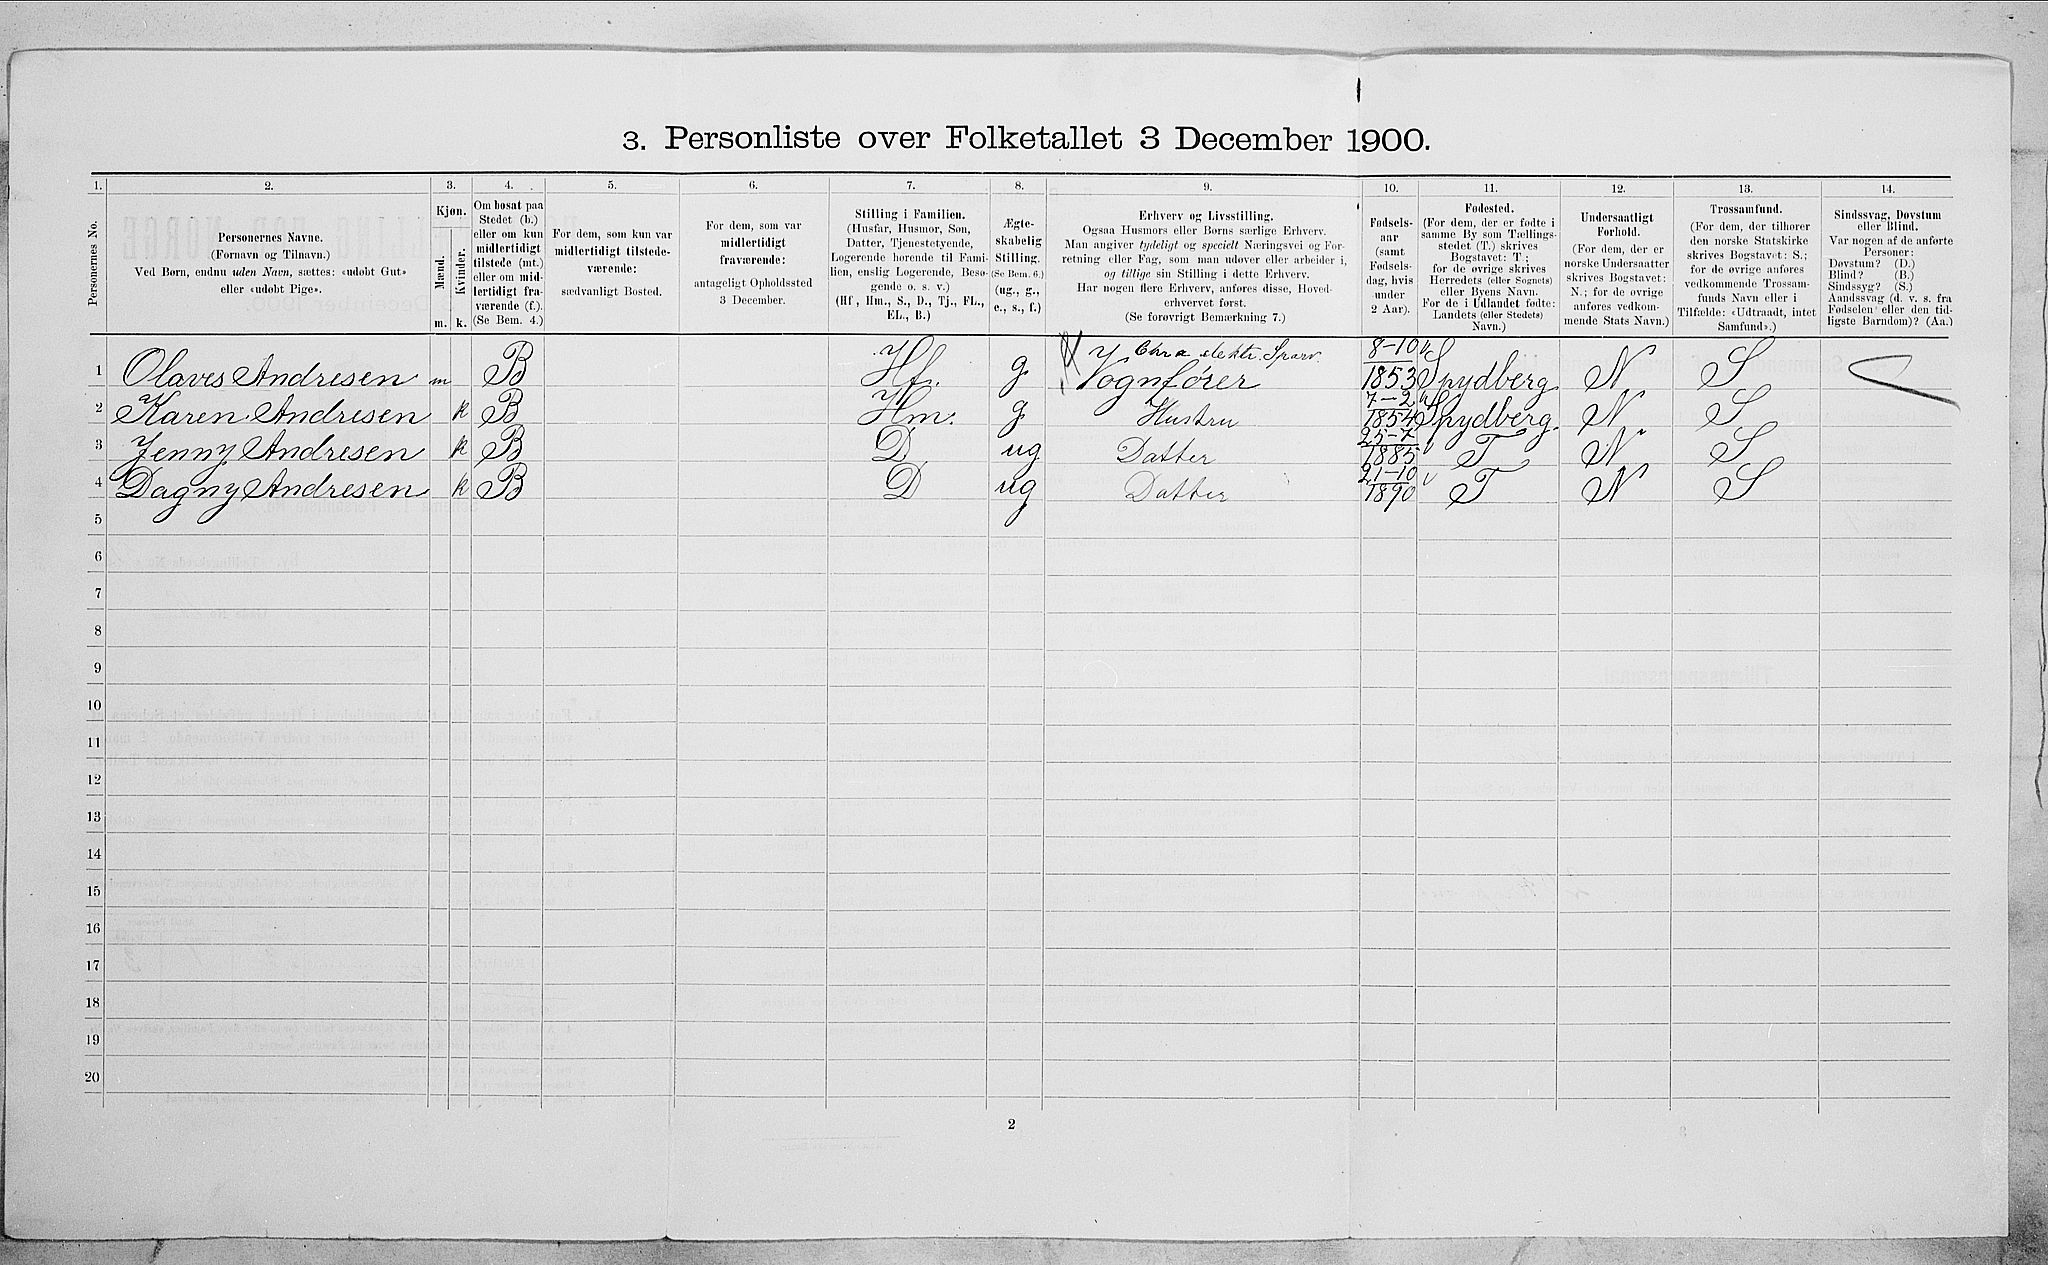 3. Personliste over Folketallet 3 December 1900.
1. 2. 3. 4. 5. 6. 7. 8. 9. 10. 11. 12. 13. 14.
Personernes No.
Personernes Navne.
(Fornavn og Tilnavn.)
Ved Børn, endnu uden Navn, sættes: «udøbt Gut»
eller «udøbt Pige».
Kjøn.
Mænd.
Kvinder.
m. k.
Om bosat paa
Stedet (b.)
eller om kun
midlertidigt
tilstede (mt.)
eller om mid-
lertidigt fra-
værende (f.).
(Se Bem. 4.)
For dem, som kun var
midlertidigt tilstede-
værende:
sædvanligt Bosted.
For dem, som var
midlertidigt
fraværende:
antageligt Opholdssted
3 December.
Stilling i Familien.
(Husfar, Husmor, Søn,
Datter, Tjenestetyende,
Logerende hørende til Fami-
lien, enslig Logerende, Besø-
gende o. s. v.)
(Hf., Hm., S., D., Tj., FL.,
EL., B.)
Ægte-
skabelig
Stilling.
(Se Bem. 6.)
(ug., g.,
e., s., f.)
Erhverv og Livsstilling.
Ogsaa Husmors eller Børns særlige Erhverv.
Man angiver tydeligt og specielt Næringsvei og For-
retning eller Fag, som man udøver eller arbeider i,
og tillige sin Stilling i dette Erhverv.
Har nogen flere Erhverv, anføres disse, Hoved-
erhvervet først.
(Se forøvrigt Bemærkning 7.)
Fødsels-
aar
(samt
Fødsels-
dag, hvis
under
2 Aar).
Fødested.
(For dem, der er fødte i
samme By som Tællings-
stedet (T.) skrives
Bogstavet: T.;
for de øvrige skrives
Herredets (eller Sognets)
eller Byens Navn.
For de i Udlandet fødte:
Landets (eller Stedets)
Navn.)
Undersaatligt
Forhold.
(For dem, der er
norske Undersaatter
skrives Bogstavet:
N.; for de øvrige
anføres vedkom-
mende Stats Navn.)
Trossamfund.
(For dem, der tilhører
den norske Statskirke
skrives Bogstavet: S.;
for de øvrige anføres
vedkommende Trossam-
funds Navn eller i
Tilfælde: «Udtraadt, intet
Samfund».)
Sindssvag, Døvstum
eller Blind.
Var nogen af de anførte
Personer:
Døvstum? (D.)
Blind? (B.)
Sindssyg? (S.)
Aandssvag (d. v. s. fra
Fødselen eller den tid-
ligste Barndom)? (Aa.)
Chra elektr. Sporv. 8-10
1 Olaves Andresen m B Hf. g. Vognfører 1853 Spydberg N S
7-2
2 Karen Andresen k B Hm. g Hustru 1854 Spydberg. N S
25-7
3 Jenny Andresen k B D ug Datter 1885 T N S
21-10
4 Dagny Andresen k B D ug Datter 1890 T N S
5
6
7
8
9
10
11
12
13
14
15
16
17
18
19
20
2